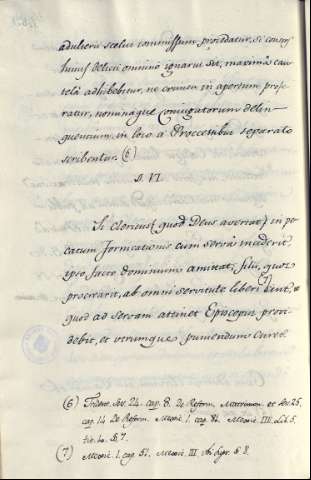 adulterii scelus commissum, procedatur, si conjux
hujus delicti omnino ignarus sit, maxima cau-
tela adhibebitur, ne crimen in apertum profe-
ratur, nominaque Conjugatorum delin-
quentium, in loco a Processibus separato
scribentur. (6)
§. VI.
Si clericus (quod Deus avertat) in pe-
catum fornicationis cum serva inciderit,
ipso facto dominium amittat; filii, quos
procrearit, ab omni servitute liberi sint,
quod ad servam attinet Episcopus provi-
debit, et utrumque puniendum curet.
(7)
(6) Trident. Ses. 24. cap. 8. de Reform. Matrimon. et Ses. 25.
cap. 14 de Reform. Mexic. I. cap. 82. Mexic. III. Lib. 5.
tit. 10. § 7.
(7) Mexic. I. cap. 51. Mexic. III. § 8.